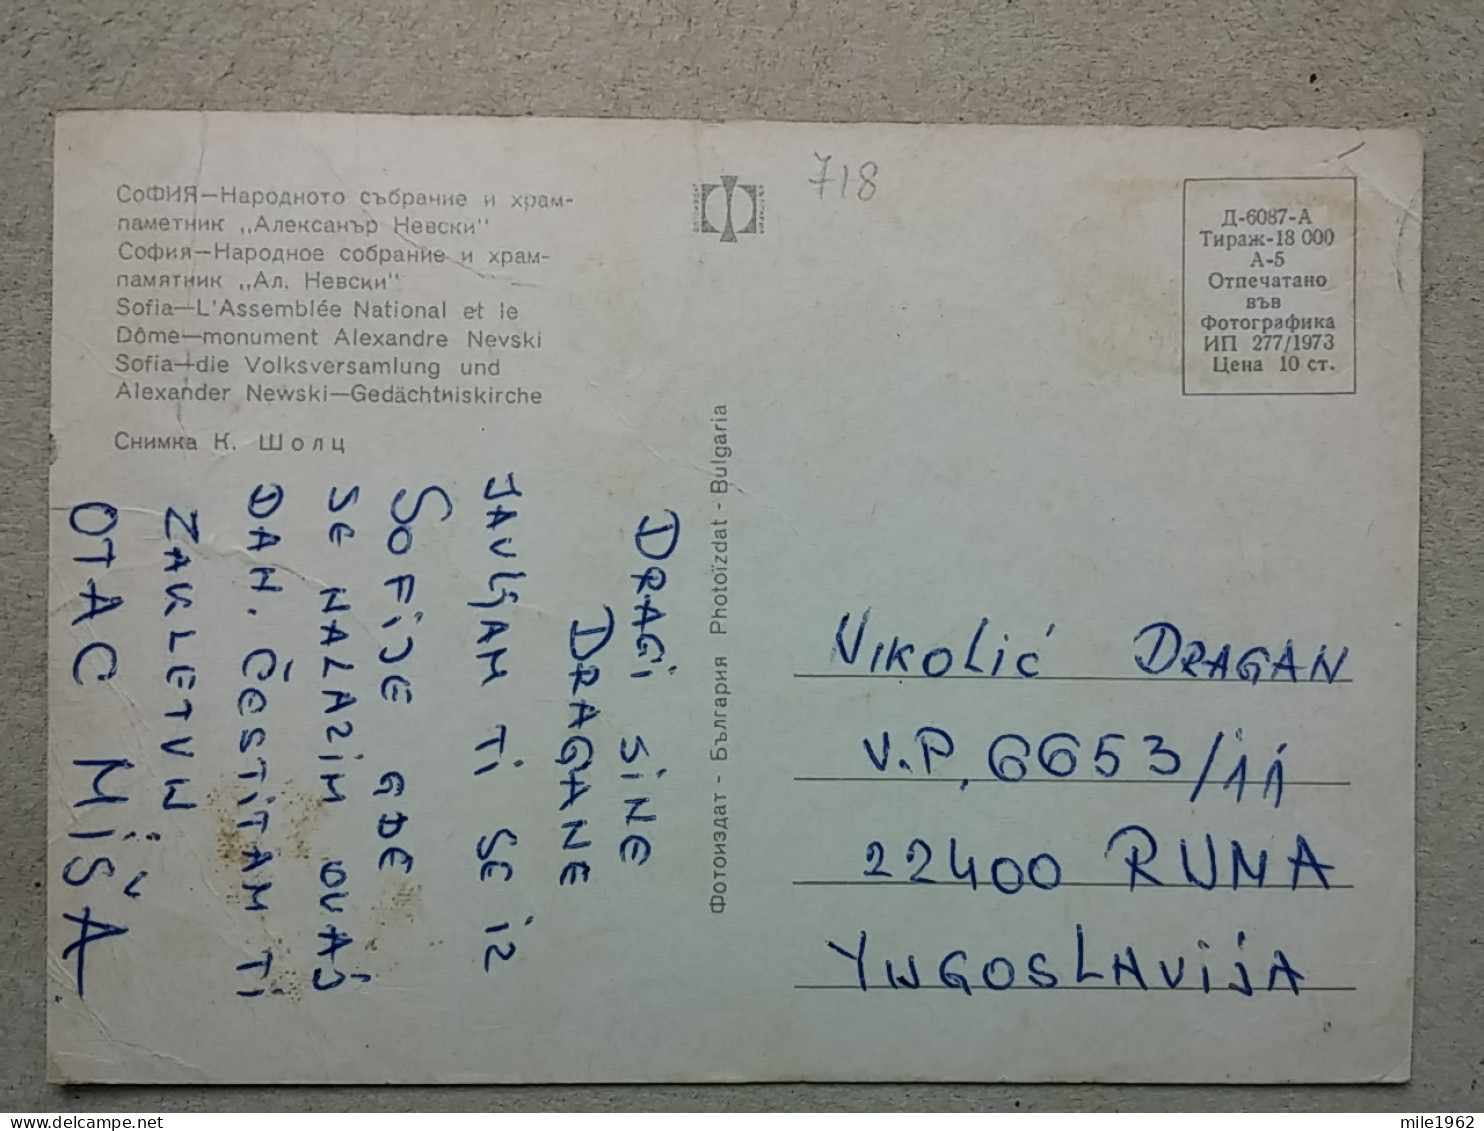 СОФИЯ—Народното събрание и храм-
паметник „Алексанър Невски"
София—Народное собрание и храм-
памятник „Ал. Невски"
Sofia—L'Assemblée National et le
Dôme—monument Alexandre Nevski
Sofia—die Volksversamlung und
Alexander Newski—Gedächtniskirche
Снимка К. Шолц
718
Д-6087-А
Тираж-18 000
А-5
Отпечатано
във
Фотографика
ИП 277/1973
Цена 10 ст.
Фотоиздат - България Photoïzdat - Bulgaria
DRAGI SINE
DRAGANE
JAVLJAM TI SE IZ
SOFIJE GDE
SE NALAZIM OVAJ
DAN. ČESTITAM TI
ZAKLETVU
OTAC MIŠA
NIKOLIĆ DRAGAN
V.P. 6653/11
22400 RUMA
YUGOSLAVIJA
mile1962